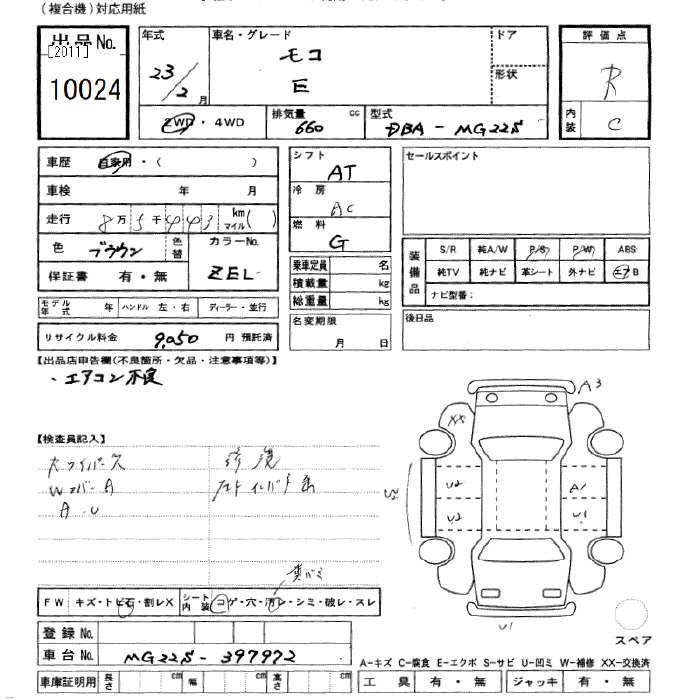 (複合機)対応用紙
出品No.
[2011]
10024
年式
23/2月
車名・グレード
モコ
E
ドア
形状
評価点
R
内装
C
2WD・4WD
排気量 660 cc
型式 DBA - MG22S
車歴 自家用・( )
車検 年 月
走行 8万5千443 km マイル( )
色 ブラウン 色替
カラーNo. ZEL
保証書 有・無
シフト AT
冷房 AC
燃料 G
乗車定員 名
積載量 kg
総重量 kg
セールスポイント
装備品
S/R 純A/W P/S P/W ABS
純TV 純ナビ 革シート 外ナビ エアB
ナビ型番:
モデル年式 年 ハンドル 左・右 ディーラー・並行
名変期限 月 日
後日品
リサイクル料金 9,050 円 預託済
【出品店申告欄(不良箇所・欠品・注意事項等)】
・エアコン不良
【検査員記入】
修復
Wカバー A
A・U
A3
XX
U2
A1
U2
U1
U1
スペア
FW キズ・トビ石・割レX シート内装 コゲ・穴・汚レ・シミ・破レ・スレ
登録No.
車台No. MG22S - 397972
車庫証明用 長さ cm 幅 cm 高さ cm
A-キズ C-腐食 E-エクボ S-サビ U-凹ミ W-補修 XX-交換済
工具 有・無 ジャッキ 有・無